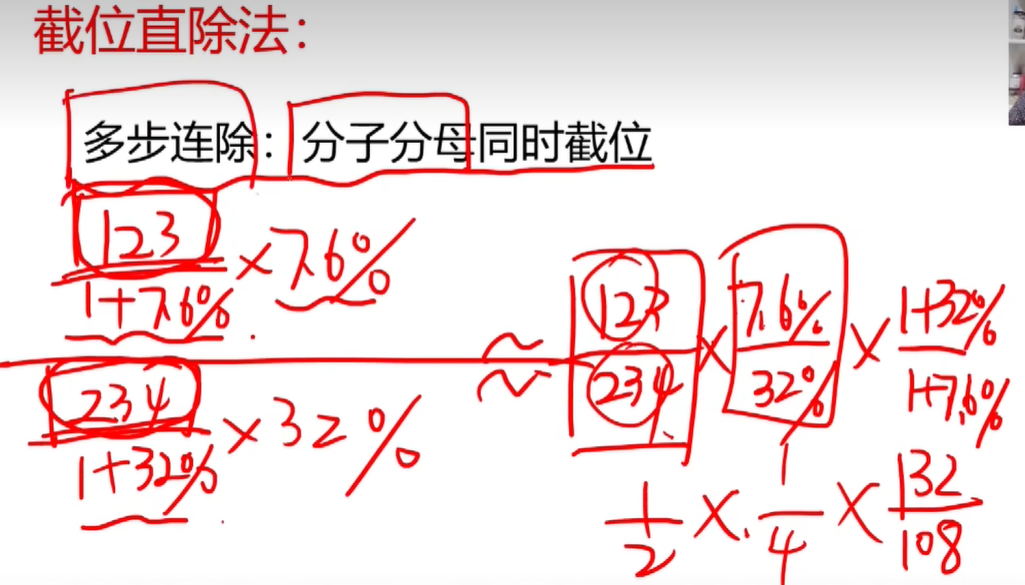 截位直除法:
多步连除: 分子分母同时截位
123
1+7.6%
×7.6%
234
1+32%
×32%
≈
123
234
×
7.6%
32%
×
1+32%
1+7.6%
1
2
×
1
4
×
132
108